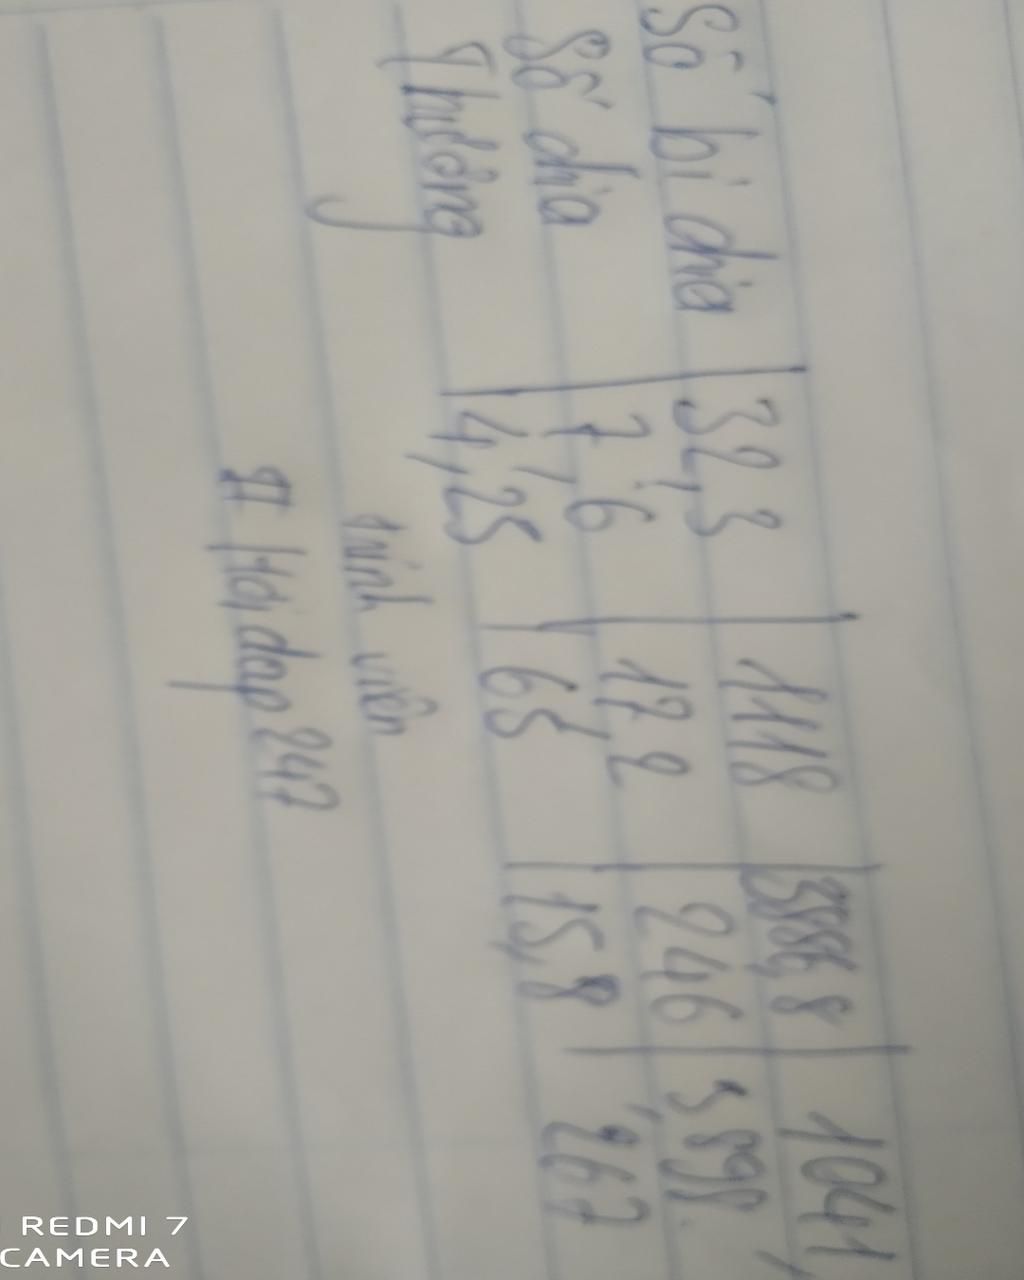 Số bị chia 32,3 1118 3886,8 1041,
Số chia 7,6 17,2 246 3,898
Thương 4,25 65 15,8 267
Hỏi đáp 247
REDMI 7
CAMERA